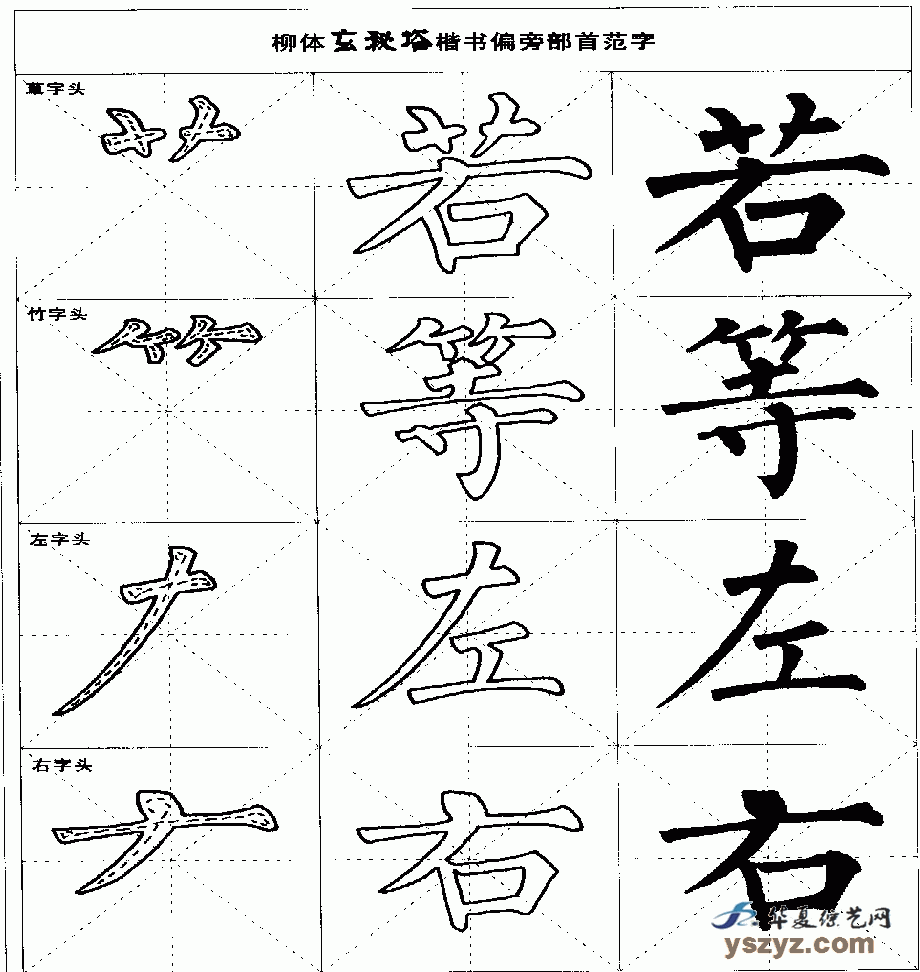 柳体玄秘塔楷书偏旁部首范字
草字头
若 若
竹字头
等 等
左字头
左 左
右字头
右 右
华夏综艺网
yszyz.com